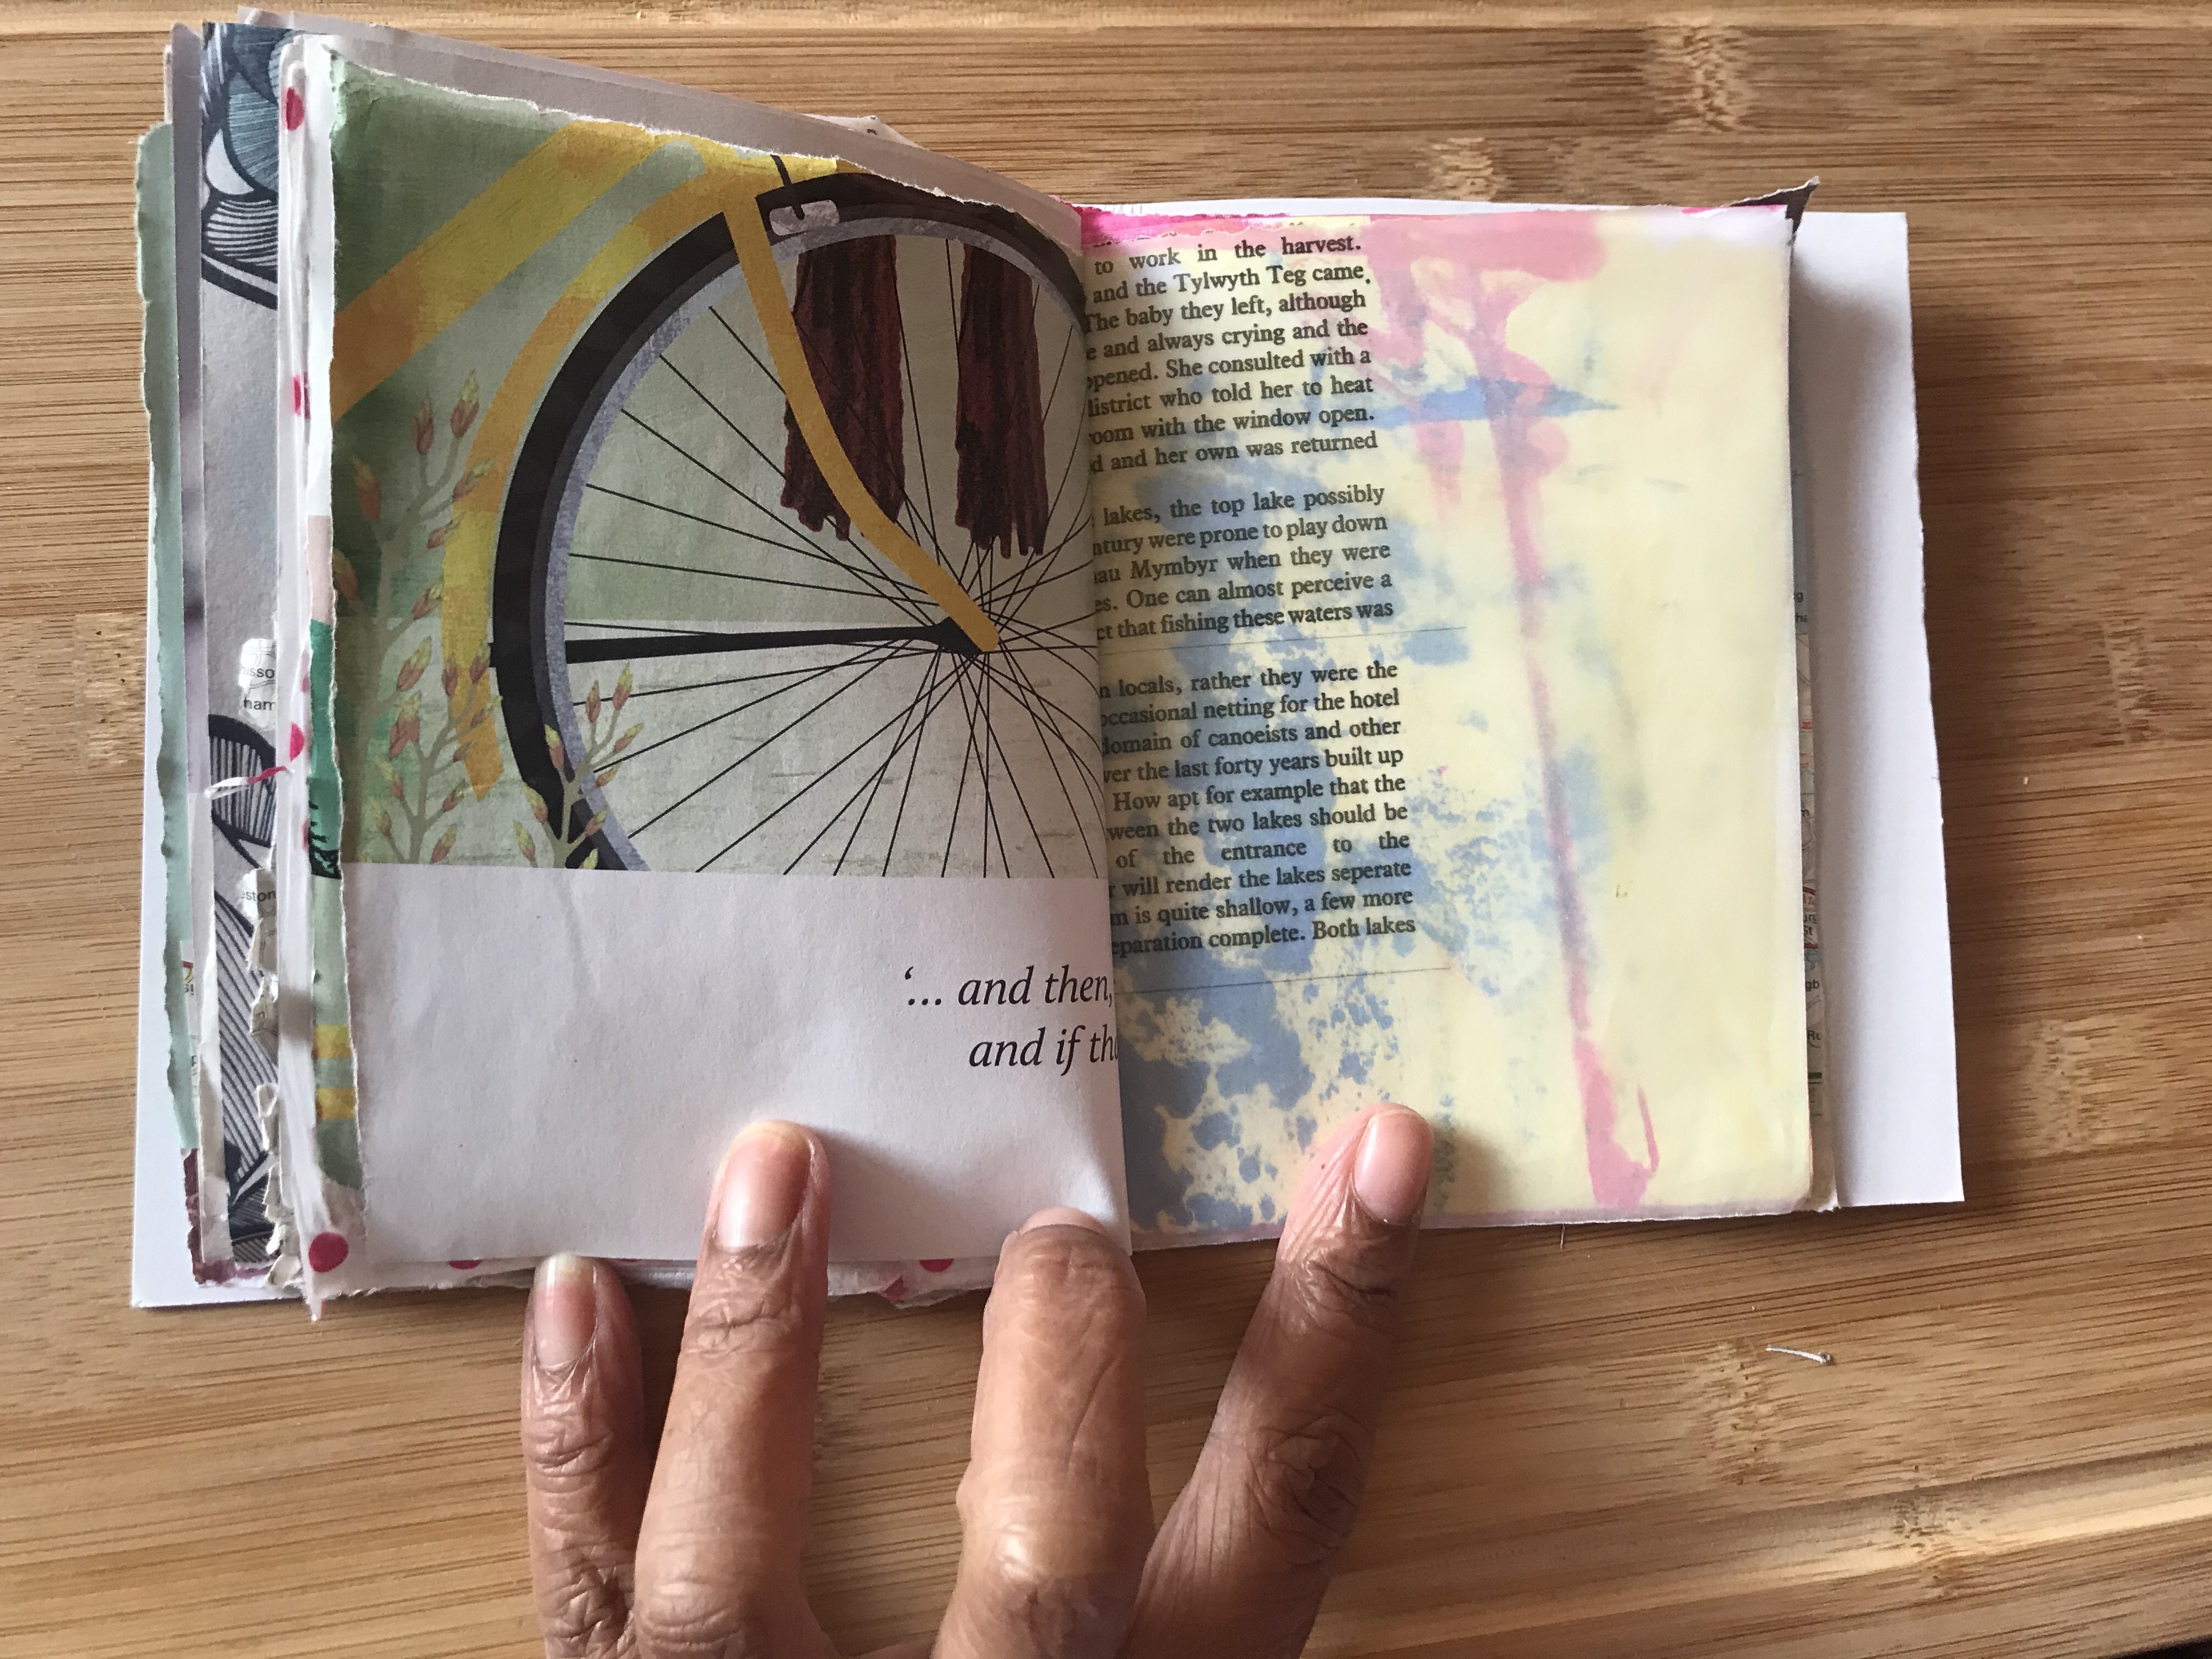 ‘... and then,
and if
to work in the harvest.
and the Tylwyth Teg came.
The baby they left, although
and always crying and the
She consulted with a
who told her to heat
with the window open.
and her own was returned
lakes, the top lake possibly
were prone to play down
Mymbyr when they were
One can almost perceive a
that fishing these waters was
locals, rather they were the
netting for the hotel
of canoeists and other
the last forty years built up
How apt for example that the
the two lakes should be
of the entrance to the
will render the lakes seperate
is quite shallow, a few more
complete. Both lakes